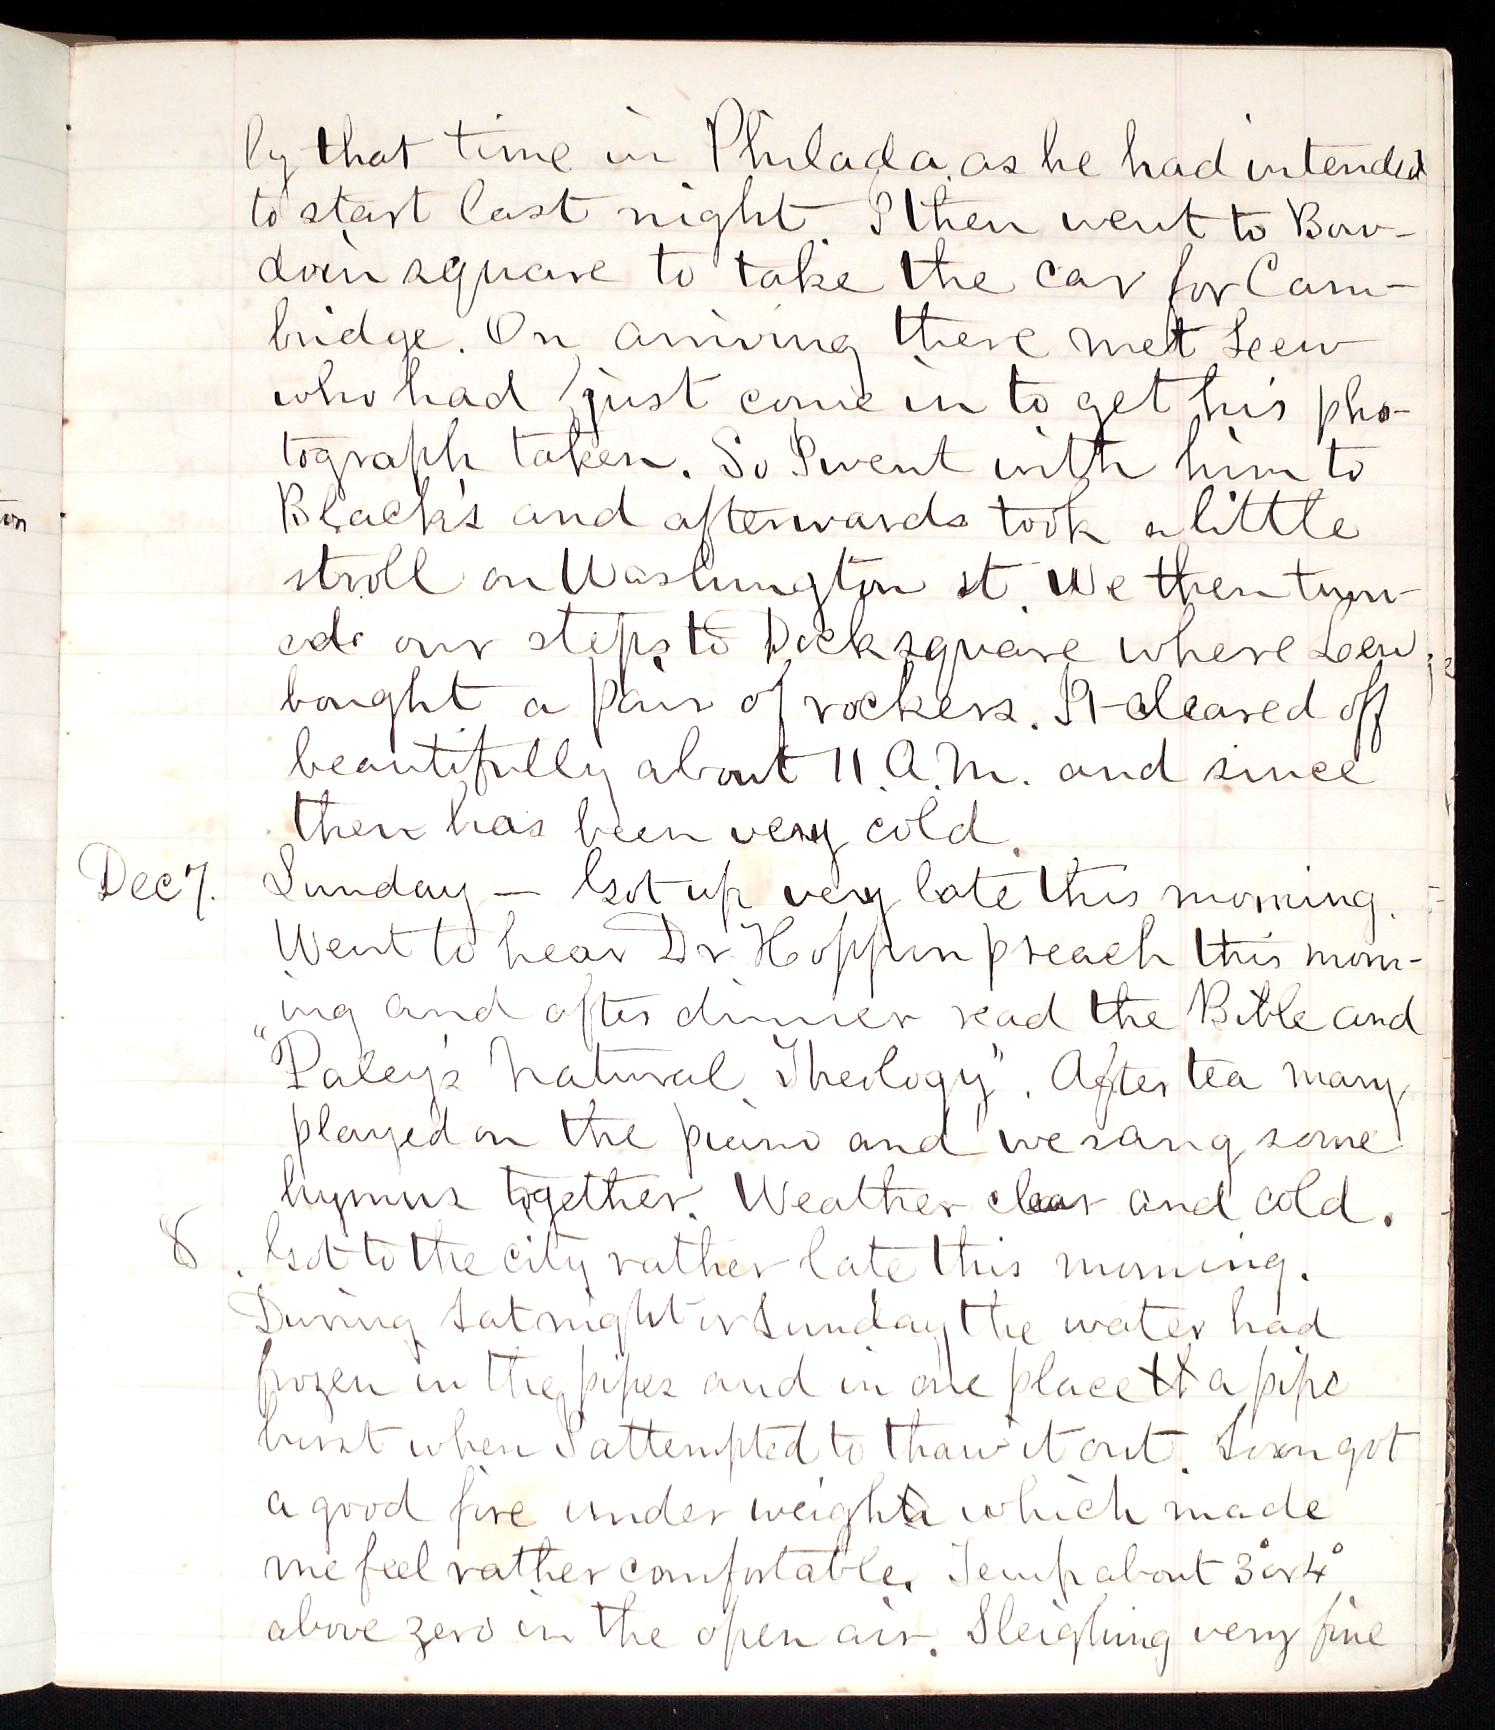 ly that time in Philada. as he had intended
to start last night. I then went to Bow-
doin square to take the car for Cam-
bridge. On arriving there met Leew
who had just come in to get his pho-
tograph taken. So I went with him to
Black's and afterwards took a little
stroll on Washington st. We then turn-
ed our steps to Dock square where Lew.
bought a pair of rockers. It cleared off
beautifully about 11. A.M. and since
then has been very cold.
Dec 7. Sunday — Got up very late this morning.
Went to hear Dr. Hoppin preach this morn-
ing and after dinner read the Bible and
"Paley's Natural Theology". After tea Mary
played on the piano and we sang some
hymns together. Weather clear and cold.
8. Got to the city rather late this morning.
During Sat night or Sunday the water had
frozen in the pipes and in one place a pipe
burst when I attempted to thaw it out. Soon got
a good fire under weigh which made
me feel rather comfortable. Temp about 3° or 4°
above zero in the open air. Sleighing very fine